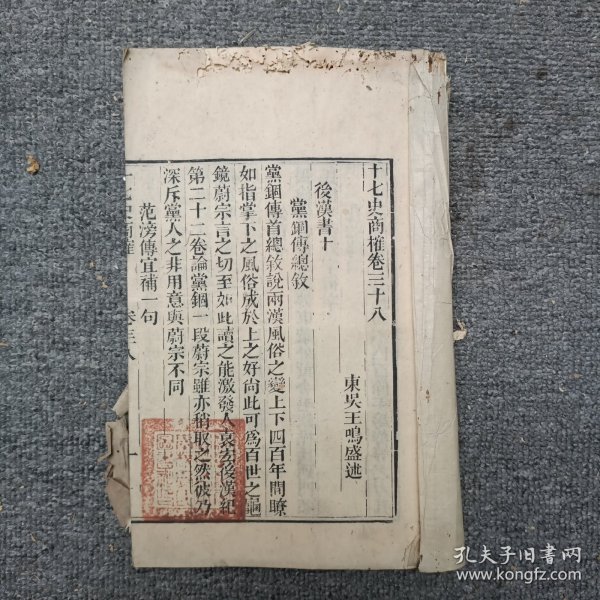 十七史商榷卷三十八
東吳王鳴盛述
後漢書十
黨錮傳總敘
黨錮傳首總敘說兩漢風俗之變上下四百年間瞭
如指掌下之風俗成於上之好尚此可爲百世之龜
鏡蔚宗言之切至如此讀之能激發人袁宏後漢紀
第二十二卷論黨錮一段蔚宗雖亦稍取之然彼乃
深斥黨人之非用意與蔚宗不同
范滂傳宜補一句
十七史商榷
卷三八
一
孔夫子旧书网
www.kongfz.com